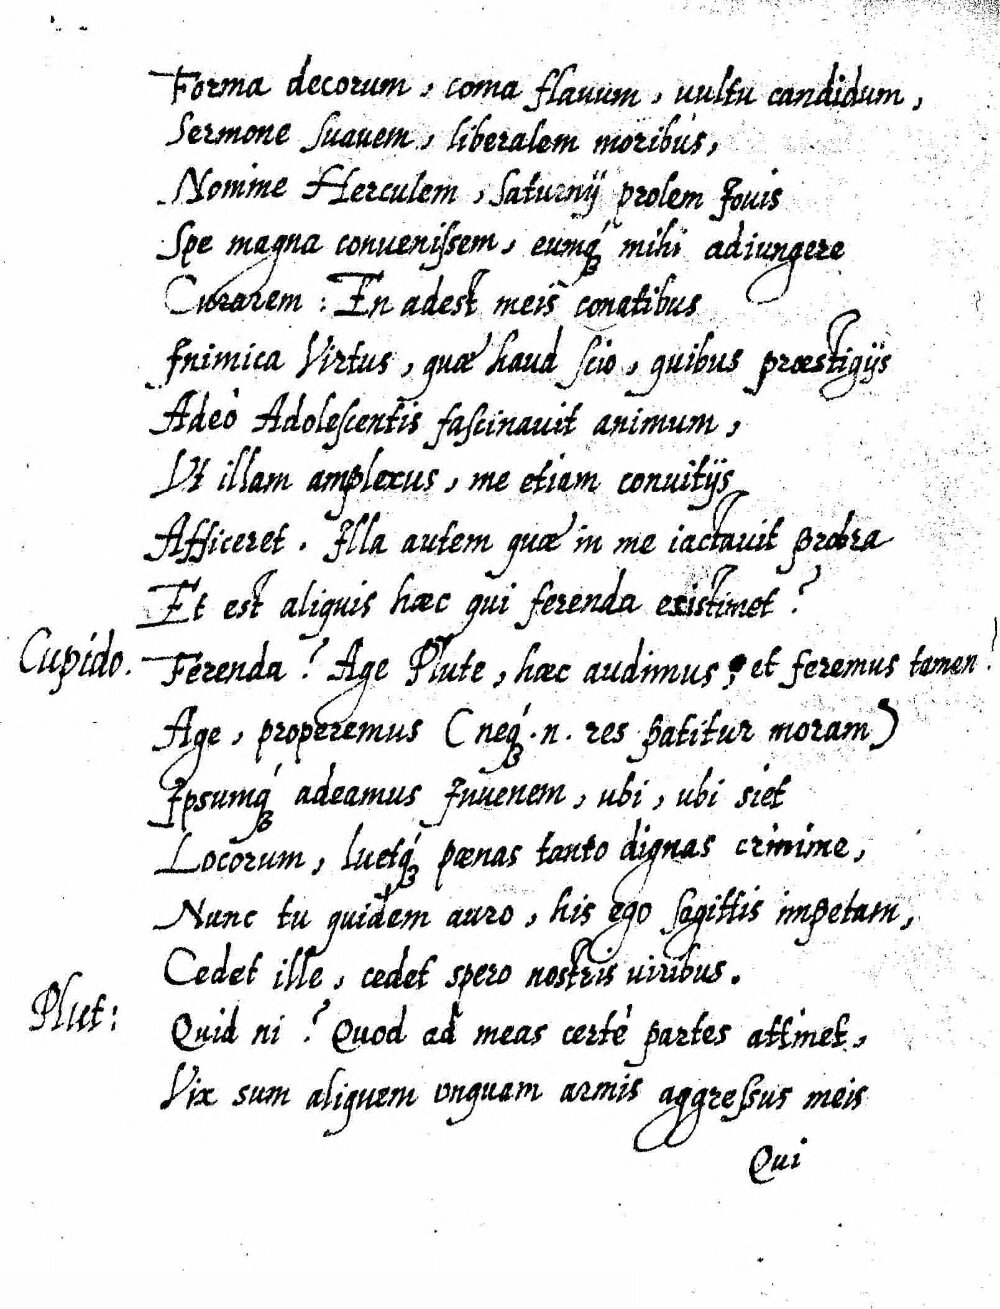 Forma decorum, coma flauum, uultu candidum,
Sermone suauem, liberalem moribus,
Nomine Herculem, Saturnij prolem Jouis
Spe magna conuenissem, eumq́ʒ mihi adiungere
Curarem : En adest meis conatibus
Inimica Virtus, quæ haud scio, quibus præstigijs
Adeò Adolescentis fascinauit animum,
Vt illam amplexus, me etiam conuitijs
Afficeret. Illa autem quæ in me iactauit probra
Et est aliquis hæc qui ferenda existimet?
Cupido. Ferenda? Age Plute, hæc audimus, et feremus tamen?
Age, properemus (neq́ʒ .n. res patitur moram)
Ipsumq́ʒ adeamus Juuenem, ubi, ubi siet
Locorum, luetq́ʒ pœnas tanto dignas crimine,
Nunc tu quidem auro, his ego sagittis impetam,
Cedet ille, cedet spero nostris uiribus.
Plut: Quid ni? Quod ad meas certè partes attinet,
Vix sum aliquem vnquam armis aggressus meis
Qui